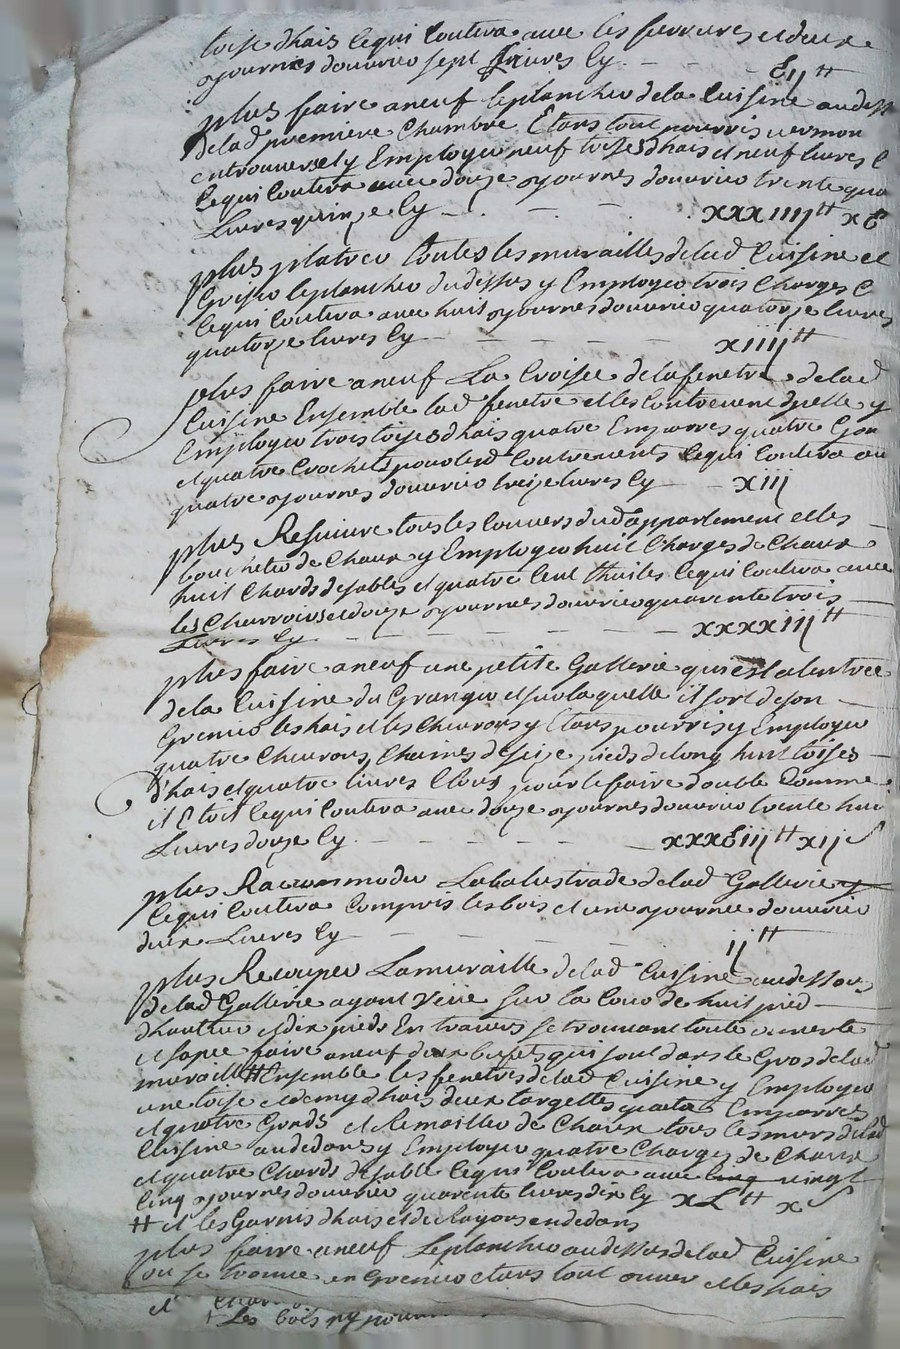 toise d'hais lequi Coutera avec les ferrures et deux
journées douvrier sept Livres Cy - - - Eij ₶
plus faire aneuf leplancher dela Cuisine audess
delad premiere Chambre Etant tout pourris
entrouversel y Employer neuf toises dhais et neuf livres C
Lequi Coutera avec douze journes douvrier trente qua
Livres quinze Cy - - - xxxiiij ₶ x E
plus platrer toutes les murailles delad Cuisine et
Griser leplancher dudessus y Employer trois Charges C
lequi Coutera avec huit journes douvrier quatorze livres
quatorze livres Cy - - - xiiij ₶
plus faire aneuf La Croisée de lafenetre delad
Cuisine Ensemble lad fenetre et les Contrevent dycelle y
Employer trois toises dhais quatre Emparres quatre Gon
et quatre Crochets pour lesd Contrevents Lequi Coutera au
quatre journes douvrier treize livres Cy - - xiij
plus Resuivre tous les Couverts dud appartement et les
boucheter de Chaux y Employer huit Charges de Chaux
huit Chards de sables et quatre Cent thuiles Lequi Coutera avec
les Charrois et douze journes douvrier quarente trois
Livres Cy - - - xxxxiij ₶
plus faire aneuf une petite Gallerie qui est alentrée
dela Cuisine du Granger et sur laquelle il sort de son
Grenier les hais et les Chevrons y Etans pourris y Employer
quatre Chevrons Chaines de seize pieds de long huit toises
d'hais et quatre livres Clous pour le faire double Comme
il Etoit lequi Coutera avec douze journes douvrier trente huit
Livres douze Cy - - - xxxEiij ₶ xij s
plus Racommoder Labalustrade delad Gallerie y
lequi Coutera Compris les bois et une journee douvrier
deux Livres Cy - - - ij ₶
plus Recouper Lamuraille delad Cuisine audessous
delad Gallerie ayant sur la Cour de huit pied
dhauteur et dix pieds En travers se trouvant toute ouverte
et sapee faire aneuf deux qui sont dans le Gros delad
muraille ₶ Ensemble les fenetres delad Cuisine y Employer
une toise et demy dhais deux targettes quatre Emparres
et quatre Gonds et Remailler de Chaux tous les murs delad
Cuisine audedans y Employer quatre Charges de Chaux
et quatre Chards de sable lequi Coutera avec cinq vingt
Cinq journes douvrier quarente livres dix Cy xL ₶ x s
₶ et les Garnis dhais et de Rayons endedans
plus faire aneuf Leplancher audessus delad Cuisine
ou se trouve un Grenier etans tout ouver et les hais
et
+ Les bois